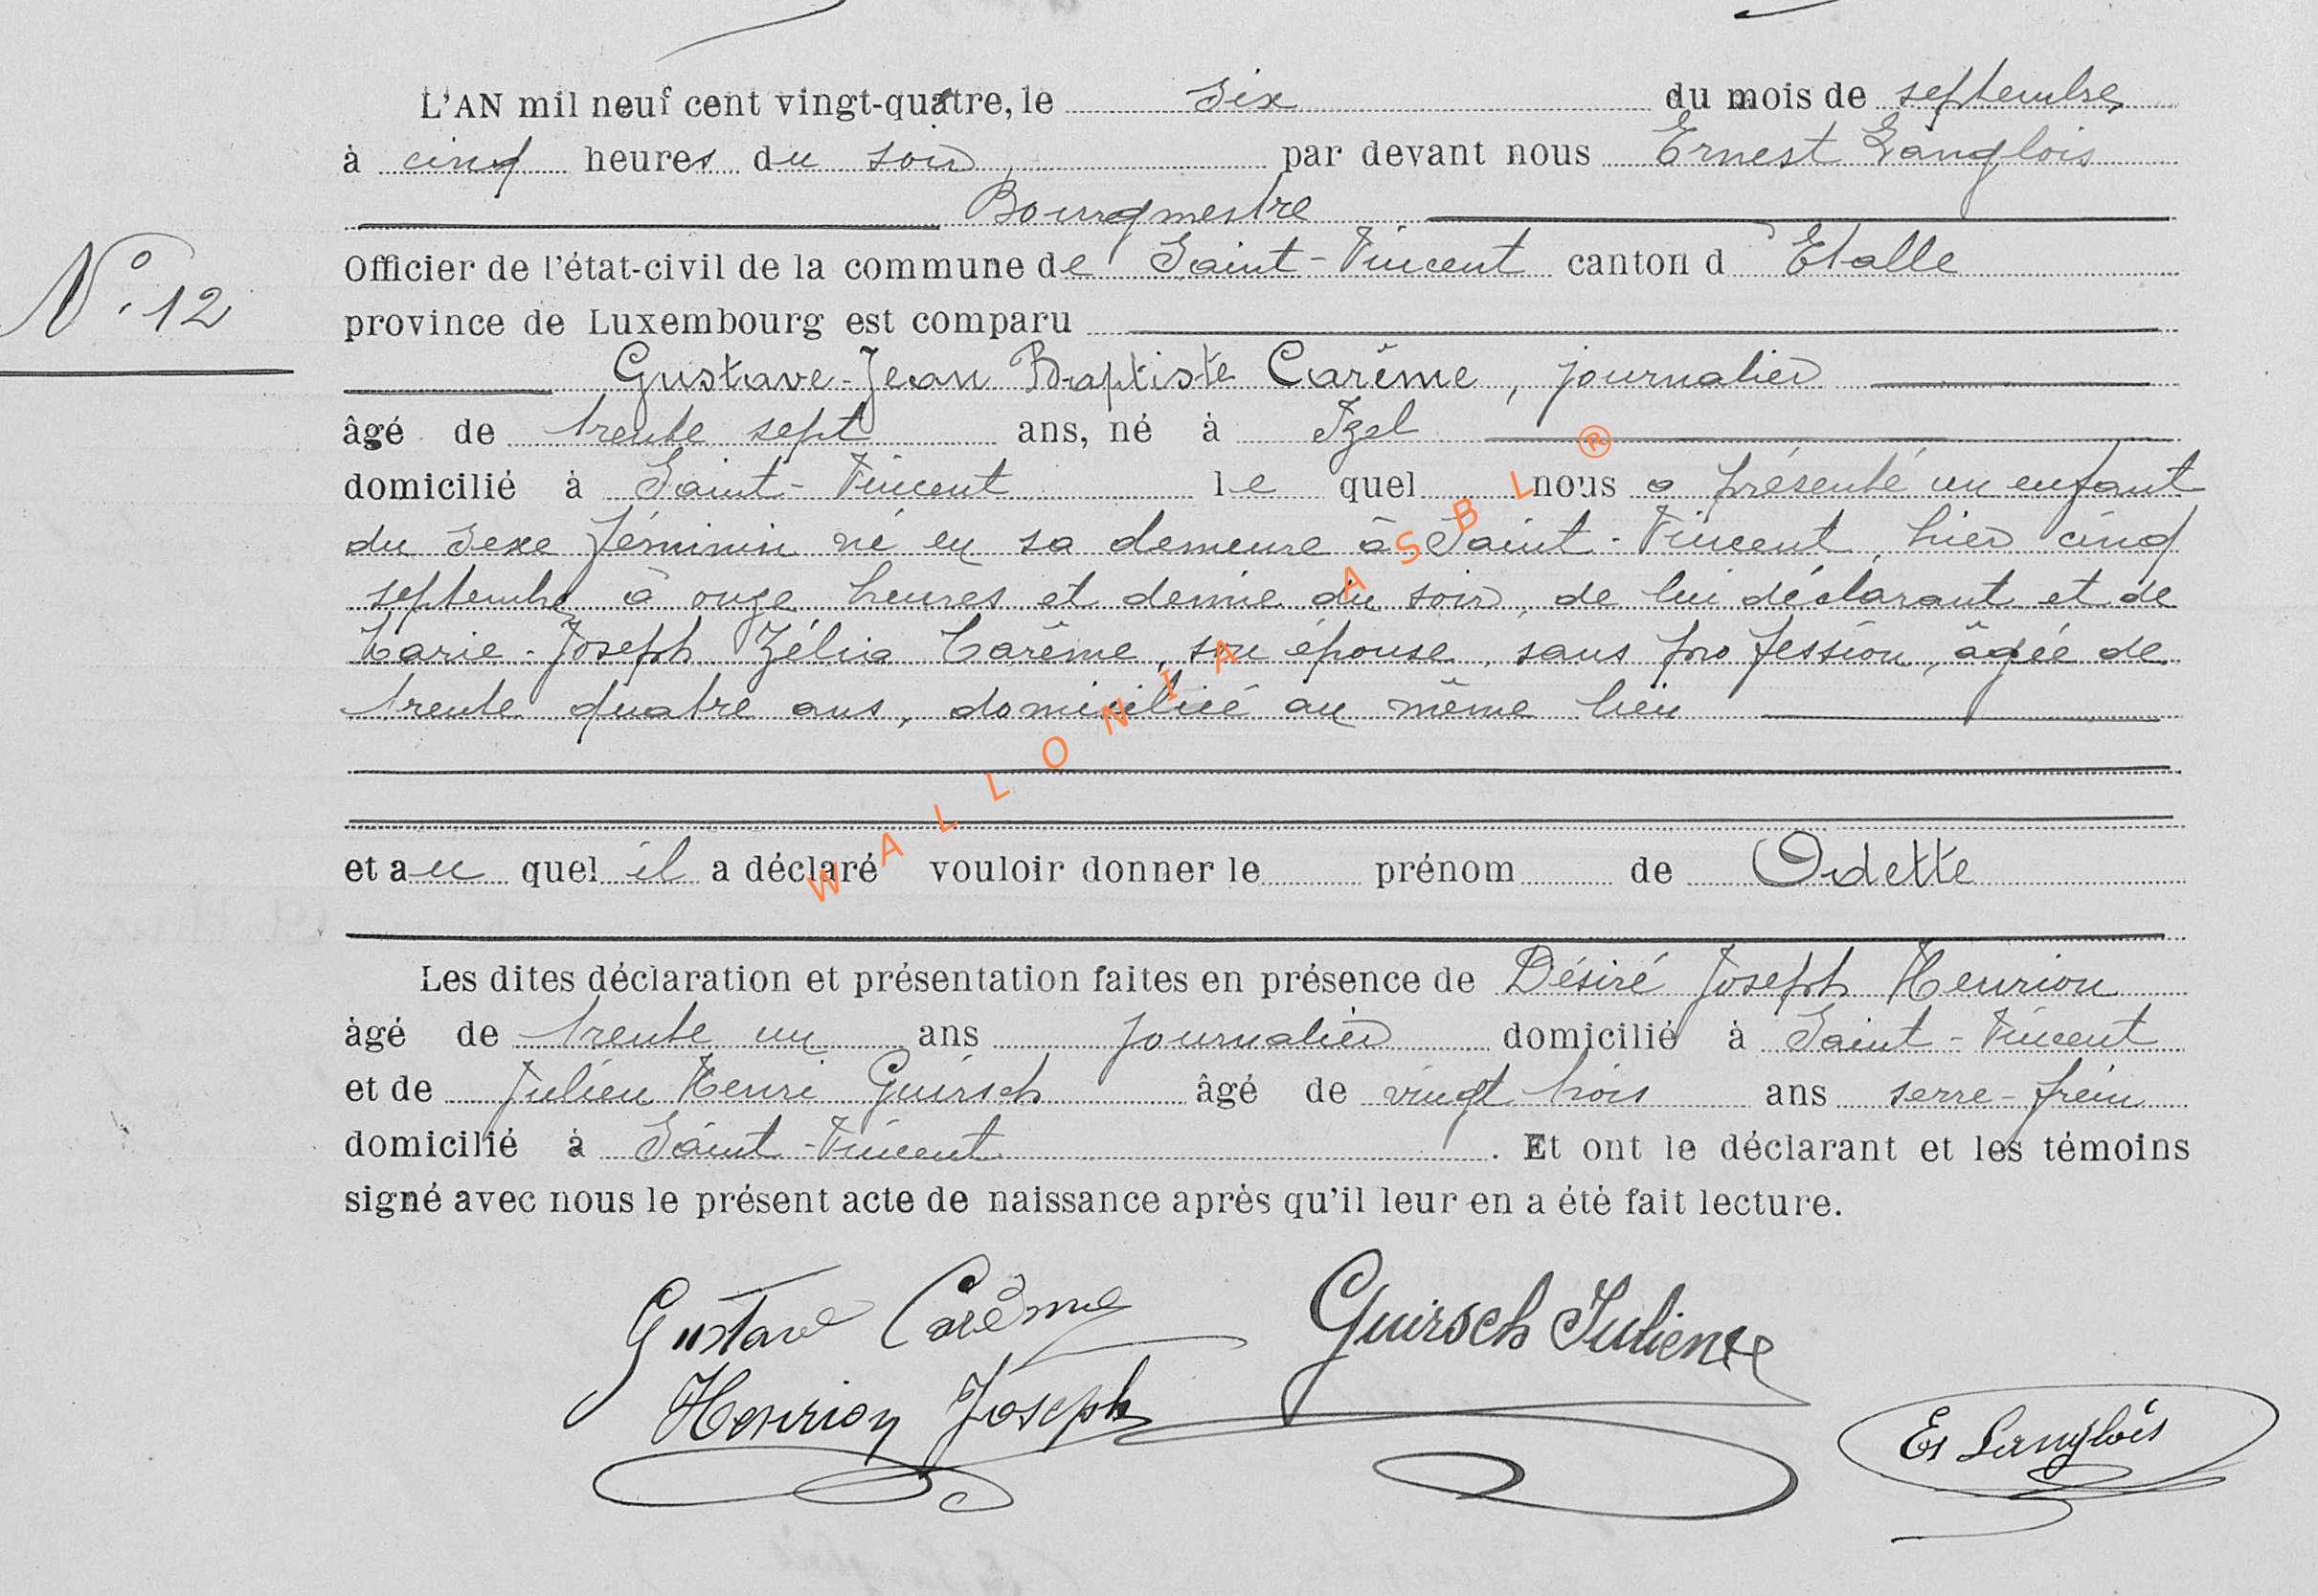 L'AN mil neuf cent vingt-quatre, le six du mois de septembre
à cinq heures du soir par devant nous Ernest Langlois
Bourgmestre
Officier de l'état-civil de la commune de Saint-Vincent canton d'Etalle
N° 12
province de Luxembourg est comparu
Gustave-Jean Baptiste Carême, journalier
âgé de trente sept ans, né à Izel
domicilié à Saint-Vincent le quel nous a présenté un enfant
du sexe féminin né en sa demeure à Saint-Vincent, hier cinq
septembre à onze heures et demie du soir, de lui déclarant et de
Marie-Joseph Zélia Carême, son épouse, sans profession, âgée de
trente quatre ans, domiciliée au même lieu
et au quel il a déclaré vouloir donner le prénom de Odette
Les dites déclaration et présentation faites en présence de Désiré Joseph Henrion
âgé de trente un ans journalier domicilié à Saint-Vincent
et de Julien Henri Guirsch âgé de vingt trois ans serre-frein
domicilié à Saint-Vincent. Et ont le déclarant et les témoins
signé avec nous le présent acte de naissance après qu'il leur en a été fait lecture.
Gustave Carême Guirsch Julien
Henrion Joseph
Es Langlois
WALLONIA ASBL ®